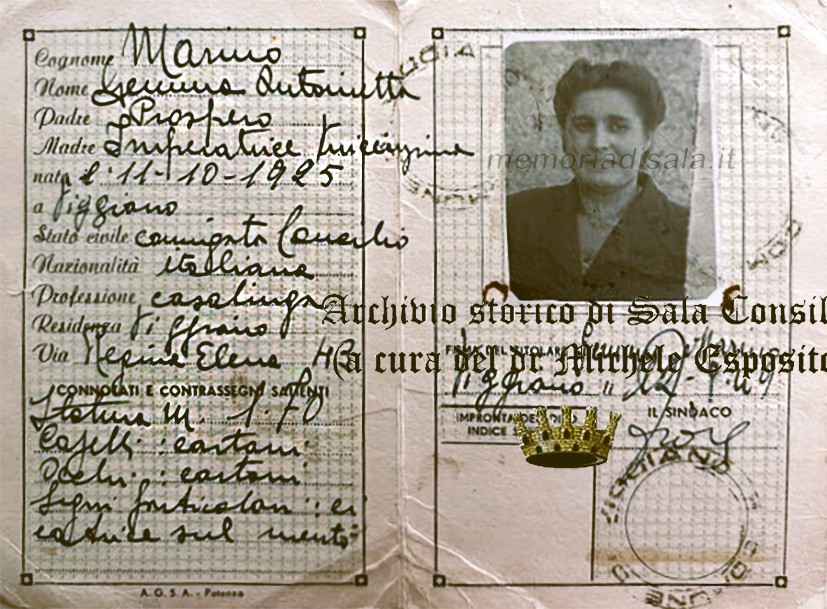 Cognome Marino
Nome Gemma Antonietta
Padre Prospero
Madre Imperatrice Vincenzina
nata il 11-10-1925
a Viggiano
Stato civile coniugata Consilio
Nazionalità italiana
Professione casalinga
Residenza Viggiano
Via Regina Elena 43
CONNOTATI E CONTRASSEGNI SALIENTI
Statura m. 1.70
Capelli : castani
Occhi : castani
Segni particolari : ci
catrice sul mento
A.G.S.A. - Potenza
memoriadisala.it
Archivio storico di Sala Consil
(a cura del dr Michele Esposito
Viggiano li
IL SINDACO
IMPRONTA DEL
INDICE